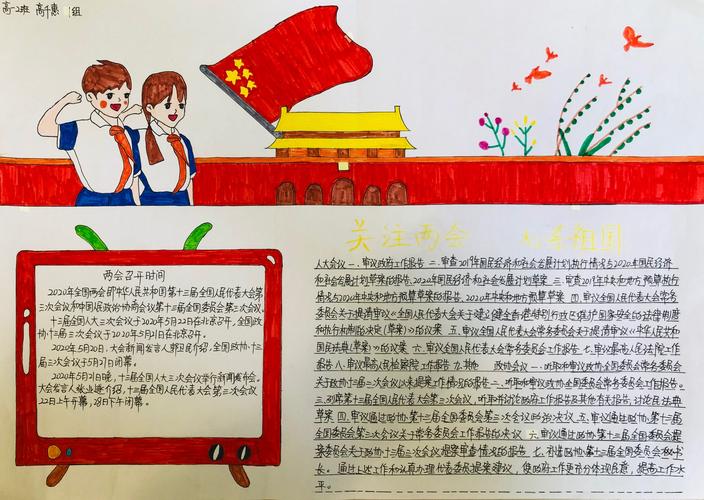 高一2班 高千惠 组
两会召开时间
2020年全国两会即中华人民共和国第十三届全国人民代表大会第
三次会议和中国人民政治协商会议第十三届全国委员会第三次会议。
十三届全国人大三次会议于2020年5月22日在北京召开,全国政
协十三届三次会议于2020年5月21日在北京召开。
2020年5月20日,大会新闻发言人郭卫民介绍,全国政协十三
届三次会议于5月21日开幕。
2020年5月21日晚,十三届全国人大三次会议举行新闻发布会。
大会发言人张业遂介绍,十三届全国人民代表大会第三次会议
22日上午开幕,28日下午闭幕。
关注两会 祖国
人大会议一、审议政府工作报告 二、审查2019年国民经济和社会发展计划执行情况与2020年国民经济
和社会发展计划草案的报告、2020年国民经济和社会发展计划草案 三、审查2019年中央和地方预算执行
情况与2020年中央和地方预算草案的报告、2020年中央和地方预算草案 四、审议全国人民代表大会常务
委员会关于提请审议《全国人民代表大会关于建立健全香港特别行政区维护国家安全的法律制度
和执行机制的决定(草案)》的议案 五、审议全国人民代表大会常务委员会关于提请审议《中华人民共和
国民法典(草案)》的议案 六、审议全国人民代表大会常务委员会工作报告 七、审议最高人民法院工作
报告 八、审议最高人民检察院工作报告 九、其他 政协会议一、听取和审议政协全国委员会常务委员会
关于政协十三届二次会议以来提案工作情况的报告
三、列席第十三届全国人民代表大会第三次会议,听取并讨论政府工作报告及其他有关报告,讨论民法典
草案 四、审议通过政协第十三届全国委员会第三次会议政治决议 五、审议通过政协第十三届
全国委员会第三次会议关于常务委员会工作报告的决议 六、审议通过政协第十三届全国委员会提案
委员会关于政协十三届三次会议提案审查情况的报告 七、
长。通过上述工作和认真办理代表委员提案建议,使政府工作更充分体现民意,提高工作水
平。